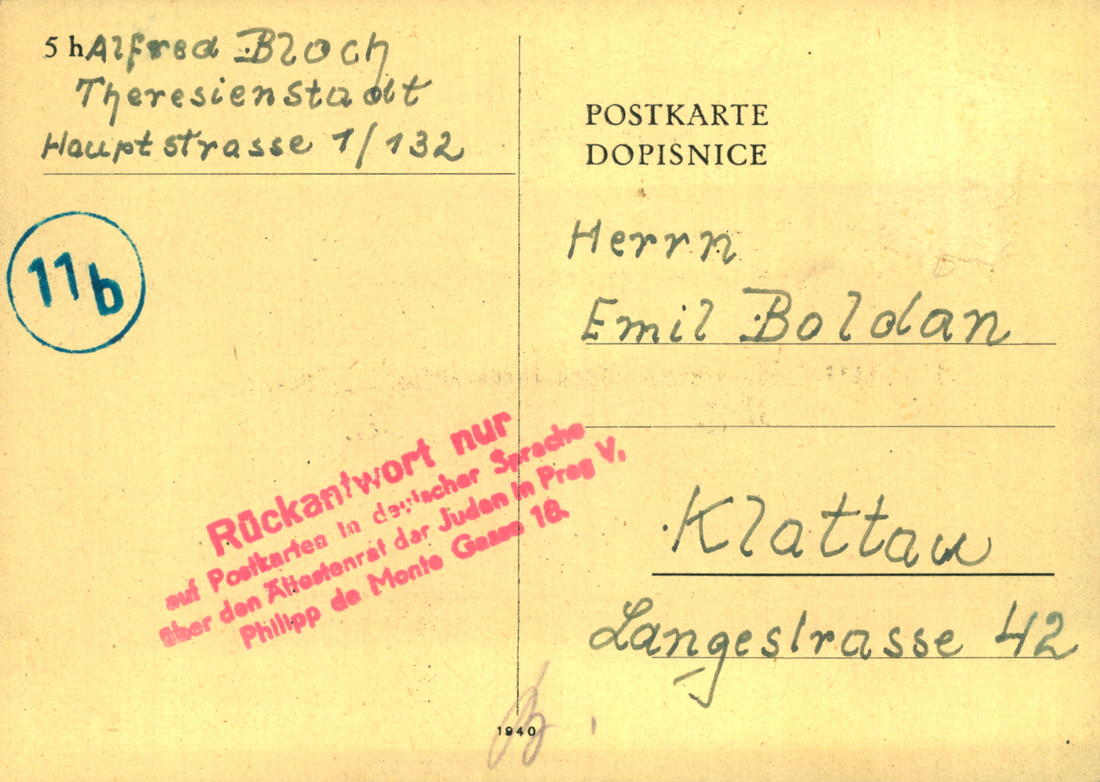 5 h Alfred Bloch
Theresienstadt
Hauptstrasse 1/132
11b
POSTKARTE
DOPISNICE
Herrn
Emil Boldan
Klattau
Langestrasse 42
Rückantwort nur
auf Postkarten in deutscher Sprache
über den Ältestenrat der Juden in Prag V,
Philipp de Monte Gasse 18.
1940